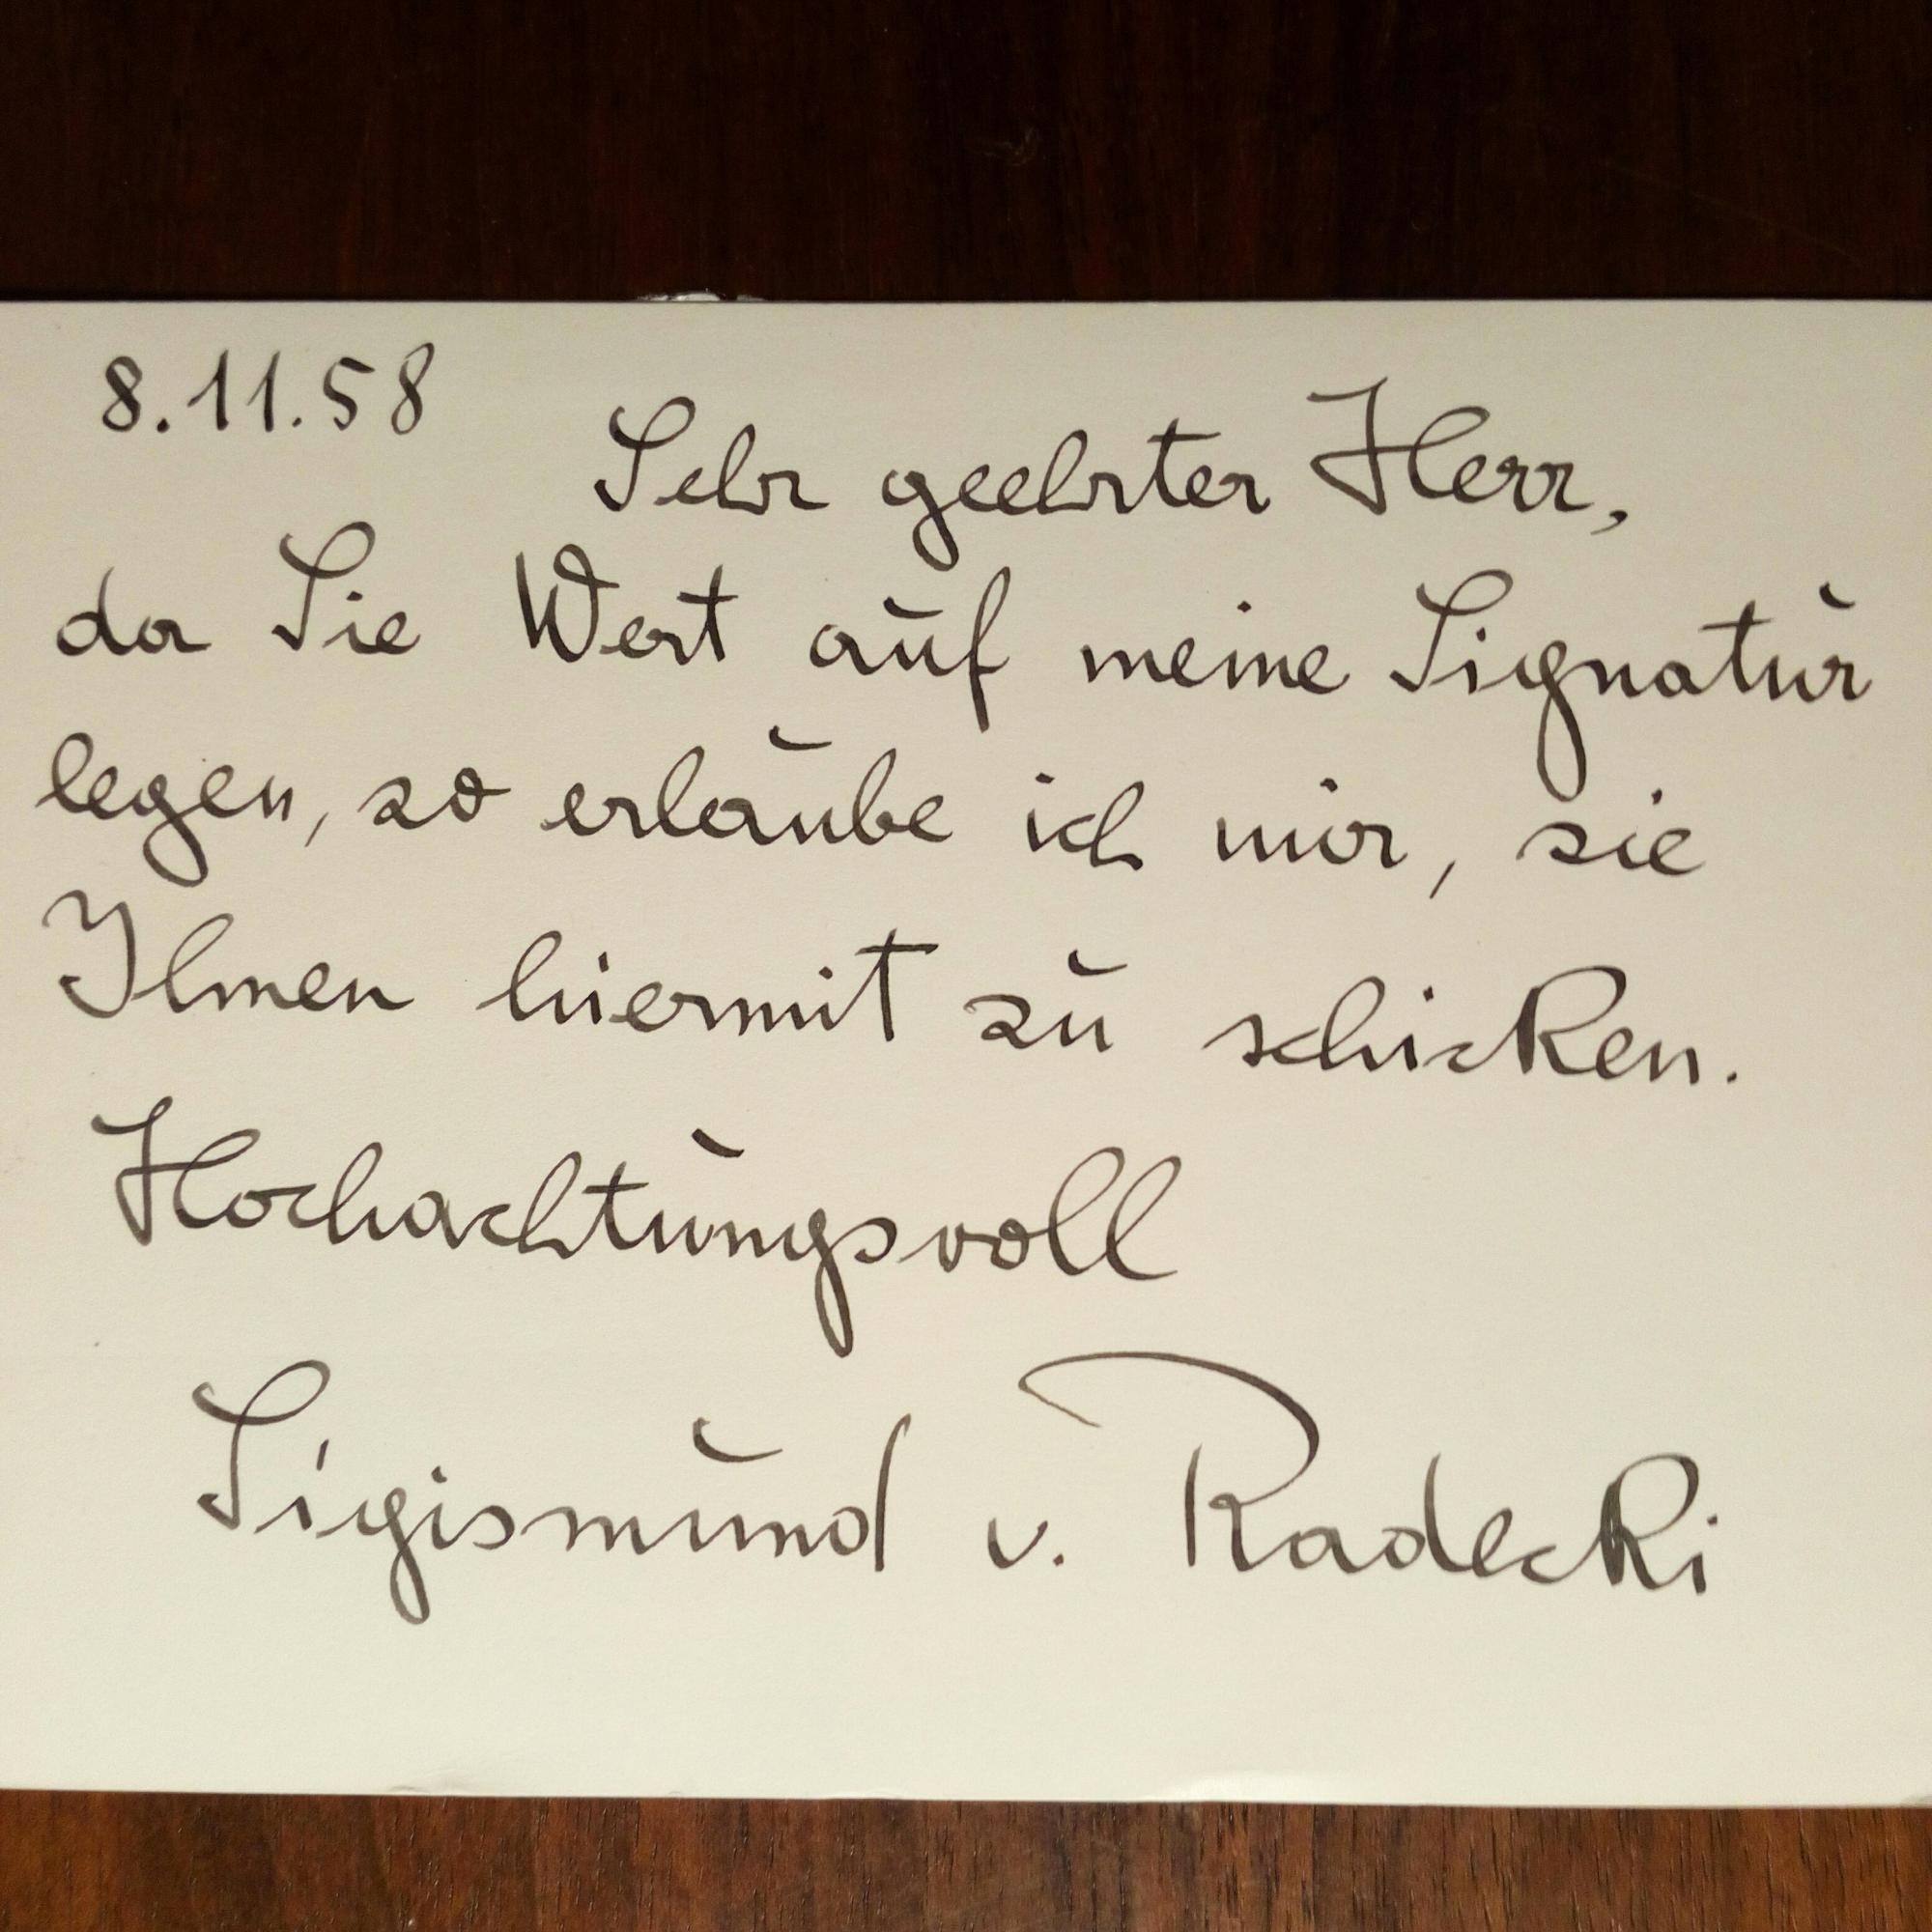 8.11.58
Sehr geehrter Herr,
da Sie Wert auf meine Signatur
legen, so erlaube ich mir, sie
Ihnen hiermit zu schicken.
Hochachtungsvoll
Sigismund v. Radecki